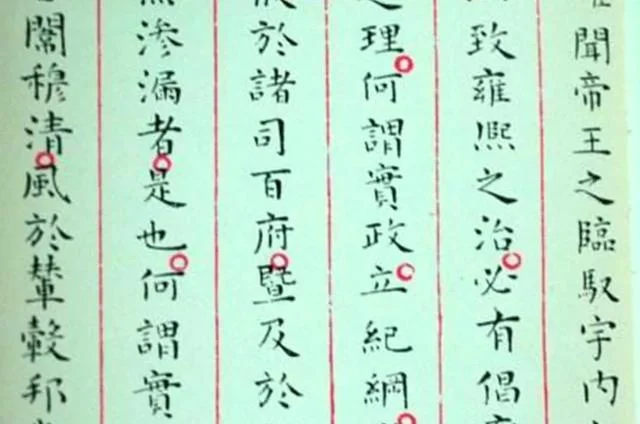 聞帝王之臨馭宇内
致雍熙之治必有倡
理何謂實政立紀綱
於諸司百府暨及於
滲漏者是也何謂實
闡穆清風於輦轂邦